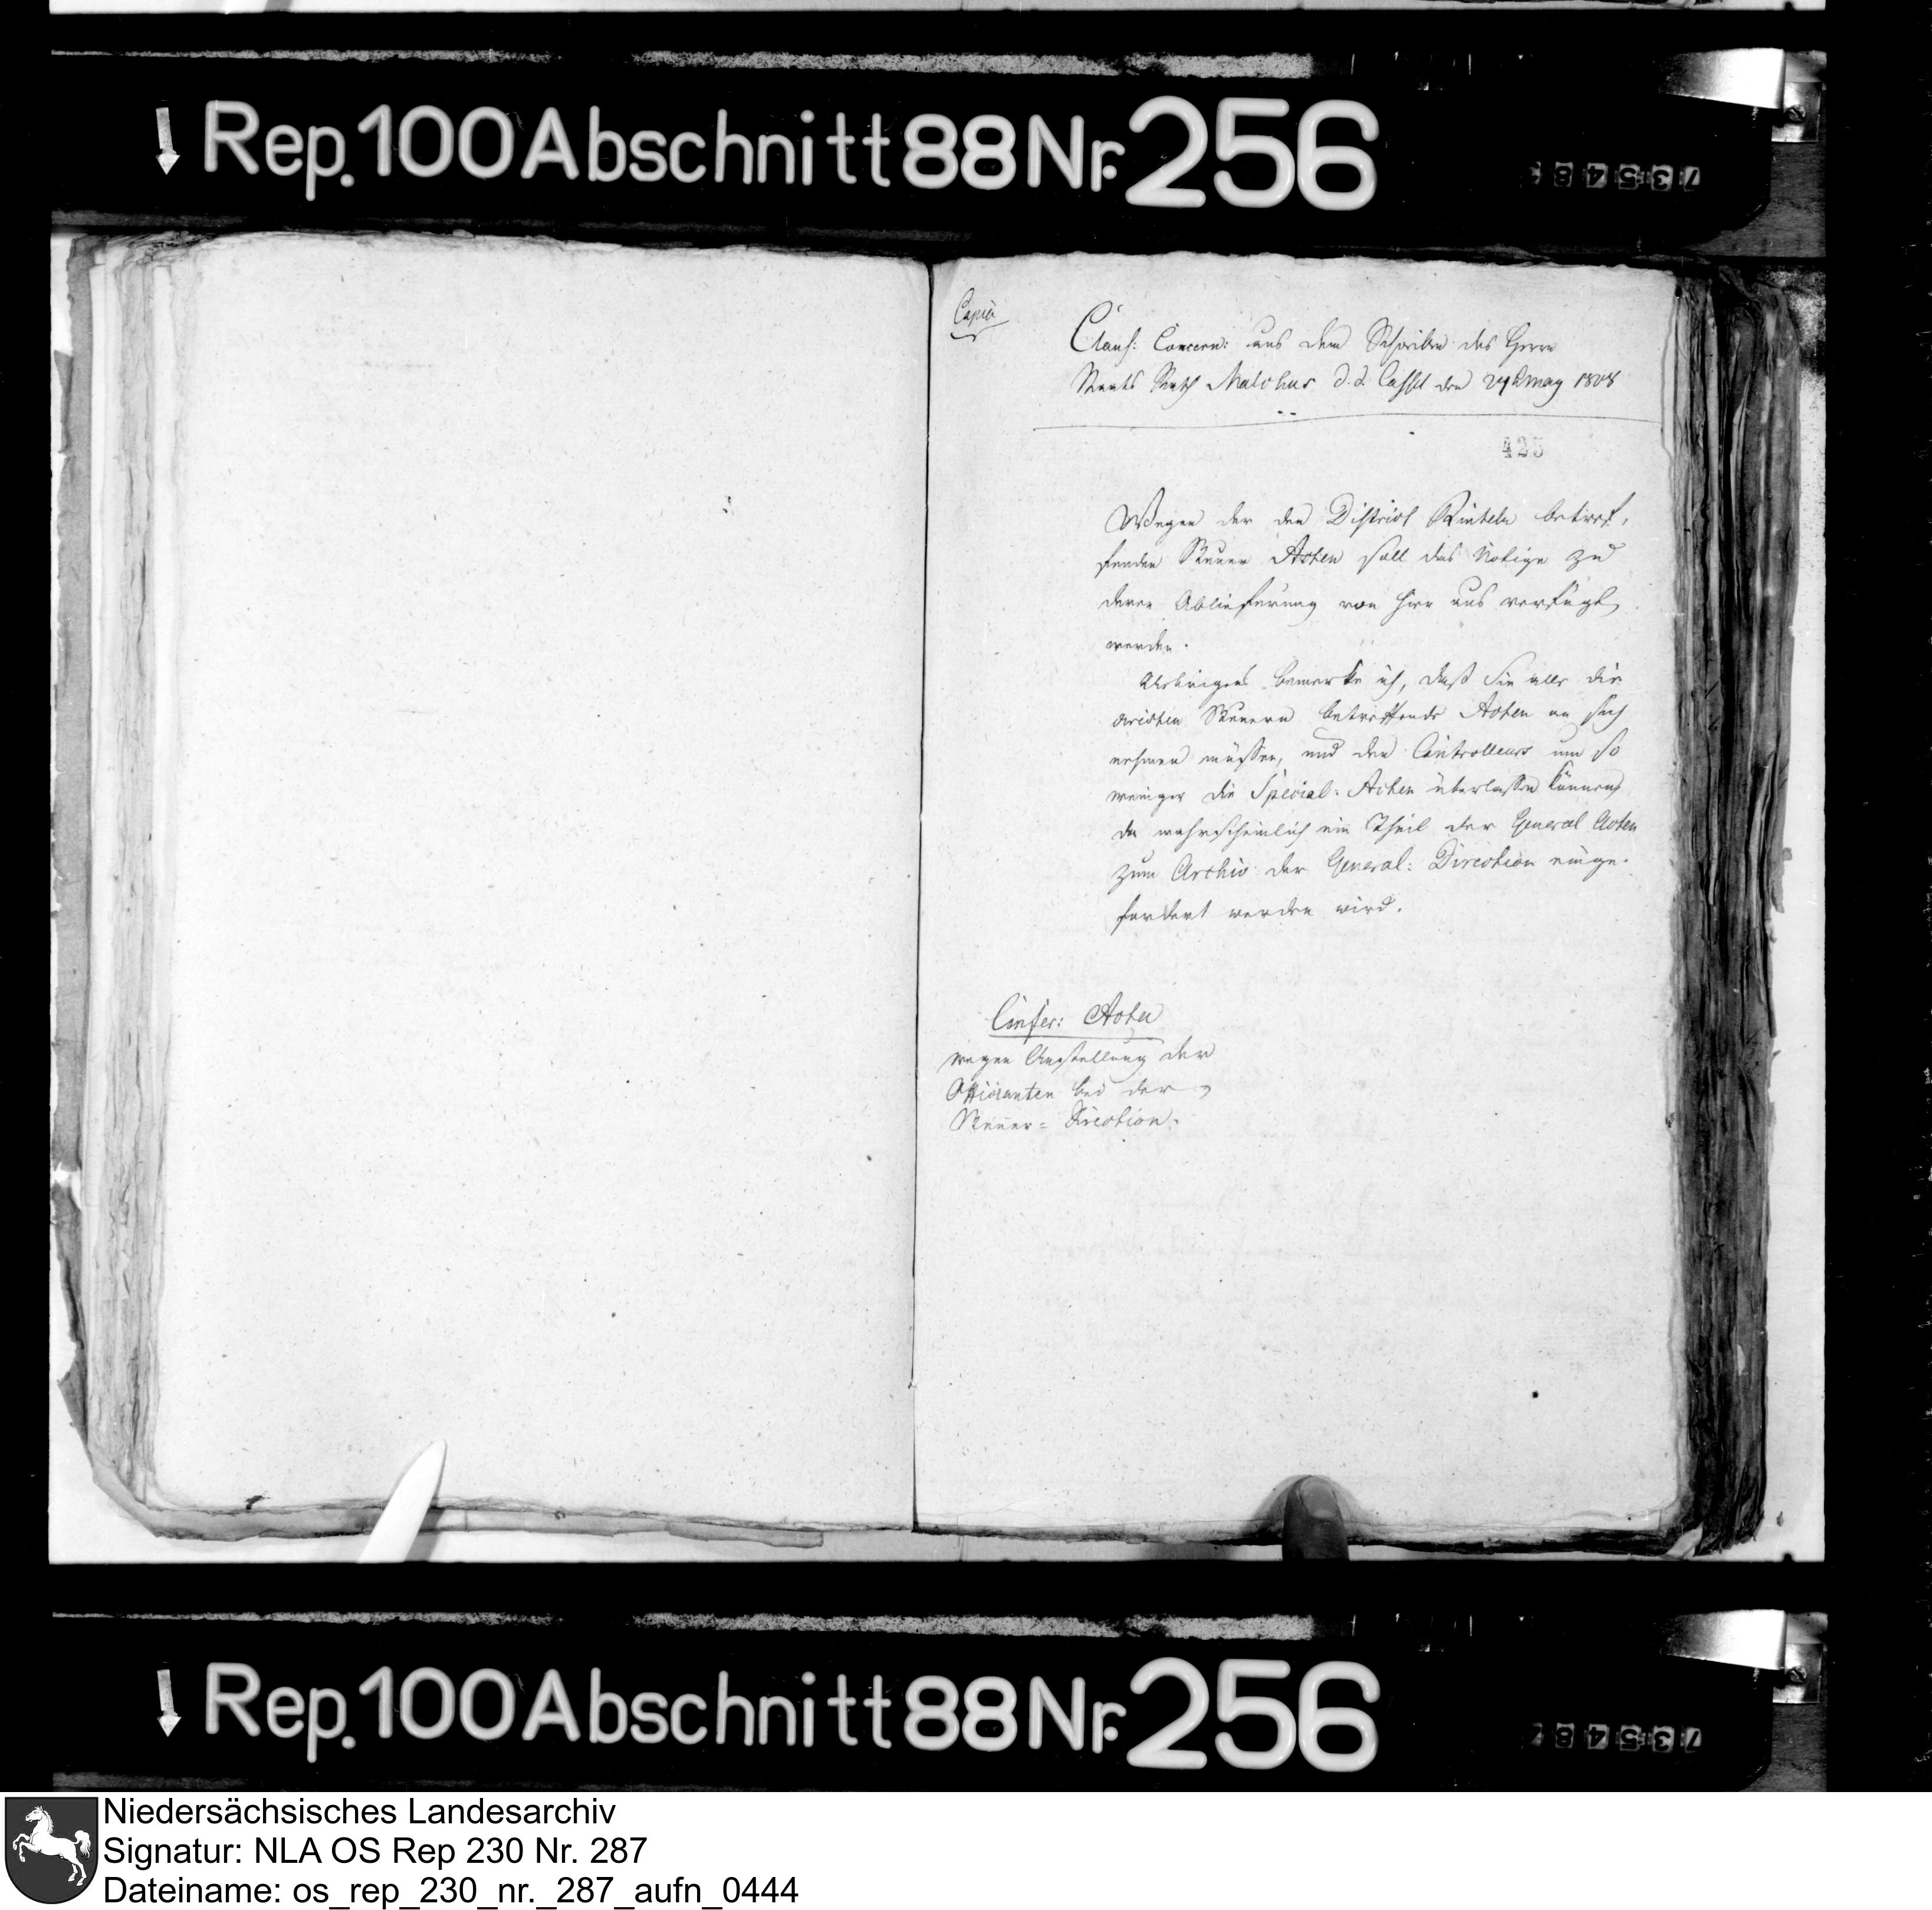 Rep. 100 Abschnitt 88 Nr. 256
Copia
Claus: Concern: aus dem Schreiben des Herrn
Staats Rath Malchus d. d. Cassel den May 1808
425
Wegen der den District Rinteln betref,
fenden Steuer Acten soll das Nötige zu
deren Ablieferung von hier aus verfügt
werden.
Uebrigens bemerke ich, daß Sie alle die
directen Steuern betreffende Acten an sich
nehmen müssen, und den Controlleurs um so
weniger die Special: Acten überlassen können,
da wahrscheinlich ein Theil der General Acten
zum Archiv der General: Direction einge-
fordert werden wird.
Confer: Acten
wegen Anstellung der
Officianten bei der
Steuer= Direction.
Rep. 100 Abschnitt 88 Nr. 256
Niedersächsisches Landesarchiv
Signatur: NLA OS Rep 230 Nr. 287
Dateiname: os_rep_230_nr._287_aufn_0444